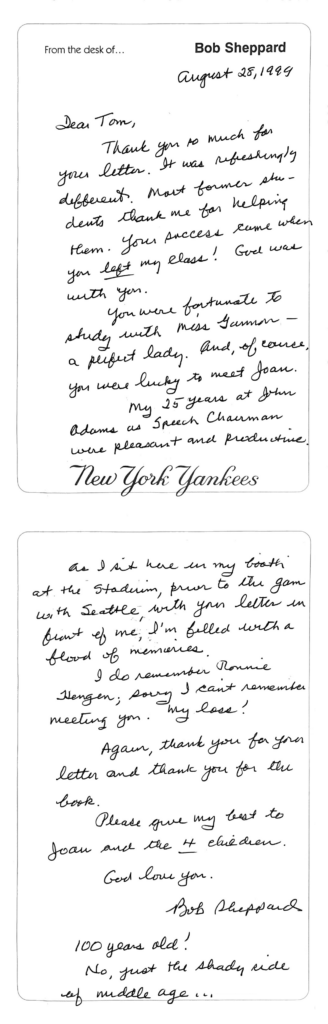 From the desk of... Bob Sheppard
August 28, 1999
Dear Tom,
Thank you so much for
your letter. It was refreshingly
different. Most former stu-
dents thank me for helping
them. Your success came when
you left my class! God was
with you.
You were fortunate to
study with Miss Gannon -
a perfect lady. And, of course,
you were lucky to meet Joan.
My 25 years at John
Adams as Speech Chairman
were pleasant and productive.
New York Yankees
As I sit here in my booth
at the Stadium, prior to the gam
with Seattle, with your letter in
front of me, I'm filled with a
flood of memories.
I do remember Ronnie
Hengen; sorry I can't remember
meeting you. My loss!
Again, thank you for your
letter and thank you for the
book.
Please give my best to
Joan and the 4 children.
God love you.
Bob Sheppard
100 years old!
No, just the shady side
of middle age...